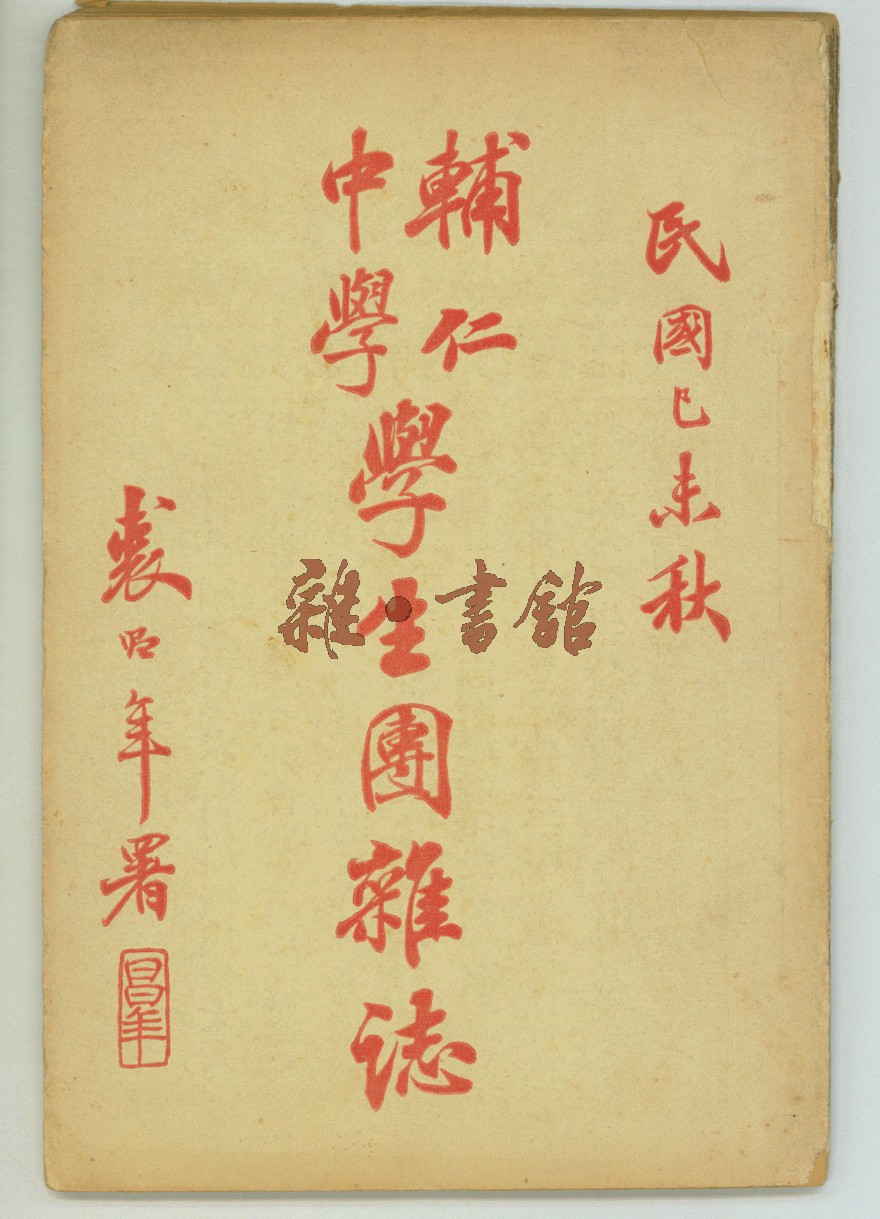 民國己未秋
輔仁
中學
學生團雜誌
裘昌年署
昌年
雜·書館